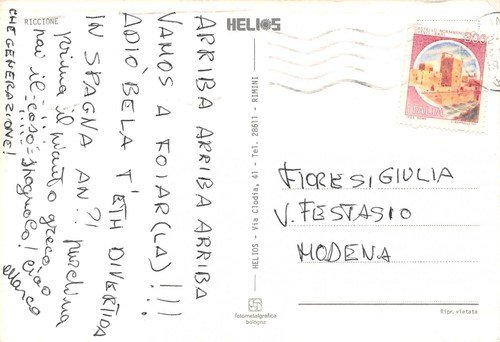 RICCIONE
HELIOS
ARRIBA ARRIBA ARRIBA
VAMOS A FOIAR(LA)!!!
ADIÒ BÈLA T'ETH DIVERTIDA
IN SPAGNA AN?!
Prima il
poi il
ciao
Marco
CHE GENERAZIONE!
HELIOS - Via Clodia, 61 - Tel. 28611 - RIMINI
fotometalgrafica
bologna
ITALIA
FIORESI GIULIA
V. FESTASIO
MODENA
Ripr. vietata